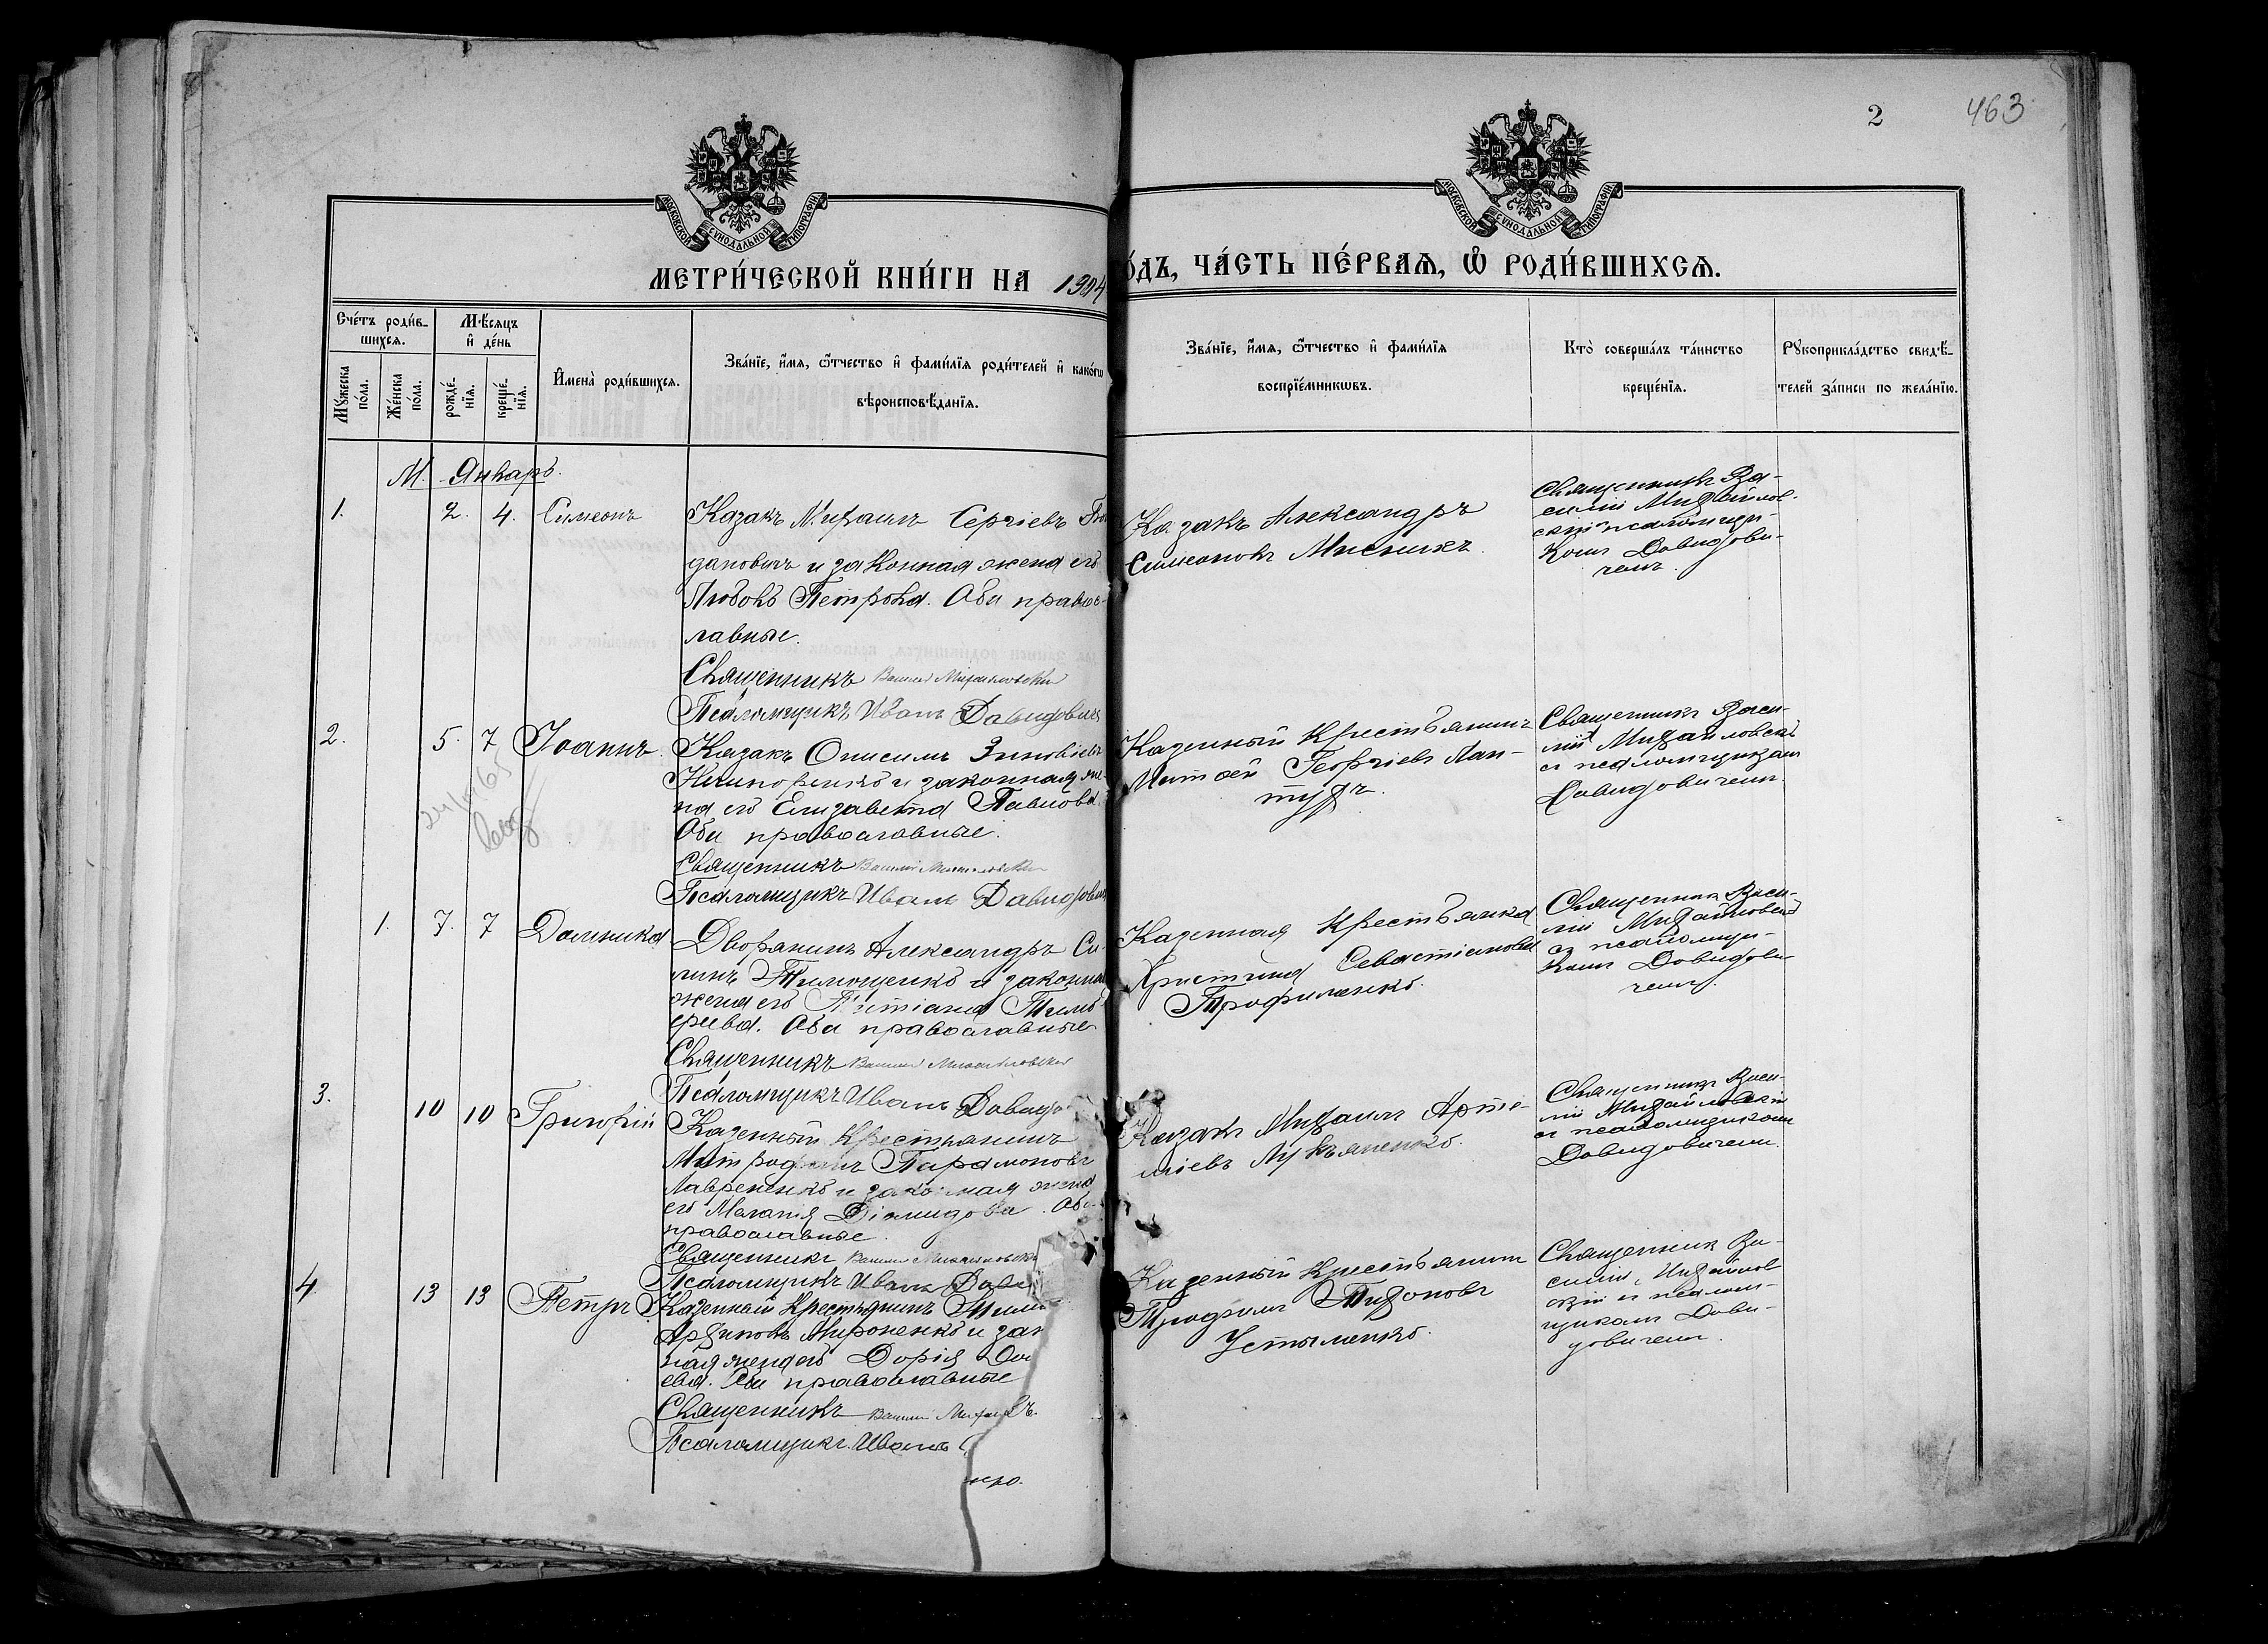 2
463
МОСКОВСКОЙ СУНОДАЛЬНОЙ ТИПОГРАФІИ
МОСКОВСКОЙ СУНОДАЛЬНОЙ ТИПОГРАФІИ
МЕТРИ́ЧЕСКОЙ КНИ́ГИ НА 1904
О́ДЪ, ЧА́СТЬ ПЕ́РВАѦ, Ѿ РОДИ́ВШИХСѦ.
Сче́тъ роди́в-
шихсѧ.
Мꙋ́жеска
по́ла.
Же́нска
по́ла.
Мѣ́сѧцъ
и҆ де́нь
рожде́-
нїѧ.
креще́-
нїѧ.
И҆мена̀ роди́вшихсѧ.
Зва́нїе, и҆́мѧ, ѻ҆́тчество и҆ фами́лїѧ роди́телей и҆ како́гѡ
вѣроисповѣ́данїѧ.
Зва́нїе, и҆́мѧ, ѻ҆́тчество и҆ фами́лїѧ
воспрїе́мникѡвъ.
Кто̀ соверша́лъ та́инство
креще́нїѧ.
Рꙋкоприкла́дство свидѣ́-
телей за́писи по жела́нїю.
М. Январь.
1.
2. 4.
Симеонъ
Казакъ Михаилъ Сергіевъ
дановичъ и законная жена его
Любовь Петрова. Оба правос-
лавные.
Священникъ Василій Михайловскій
Псаломщикъ Иванъ Давидовичъ
Казакъ Александръ
Симеоновъ Мисникъ.
Священникъ Ва-
силій Михайлов-
скій псаломщи-
комъ Давидови-
чемъ.
2.
5. 7
Іоаннъ
Казакъ Онисимъ Зиновіевъ
и законная же-
на его Елизавета Павлова
Оба православные.
Священникъ Василій Михайловскій
Псаломщикъ Иванъ Давидович
Казенный Крестьянинъ
Георгіевъ Лан-
тухъ.
Священникъ Васи-
лій Михайловскій
съ псаломщикомъ
Давидовичемъ.
1.
7. 7
Домника
Дворянинъ Александръ Си-
линъ Тимощенко и законная
жена его
Оба православные
Священникъ Василій Михайловскій
Псаломщикъ Иванъ Давидо
Казенная Крестьянка
Христина Севастіанова
Трофименко.
Священникъ Васи-
лій Михайловскій
съ псаломщи-
комъ Давидови-
чемъ.
3.
10 10
Григорій
Казенный Крестьянинъ
Митрофанъ Парамоновъ
Лавриненко и законная жена
его Меланія Діомидова. Оба
православные.
Священникъ Василій Михайловскій
Псаломщикъ Иванъ Дави
Казакъ Михаилъ Арте-
міевъ Лукьяненко.
Священникъ Васи-
лій Михайловскій
съ псаломщикомъ
Давидовичемъ.
4
13 13
Петръ
Казенный Крестьянинъ
Архиповъ Мироненко и зак
ная жена его Дарія
ева. Оба православные
Священникъ Василій Михай
Псаломщикъ Иванъ
Казенный Крестьянинъ
Трофимъ Тихоновъ
Устименко.
Священникъ Ва-
силій Михайлов
скій съ псалом-
щикомъ Дави-
довичемъ.